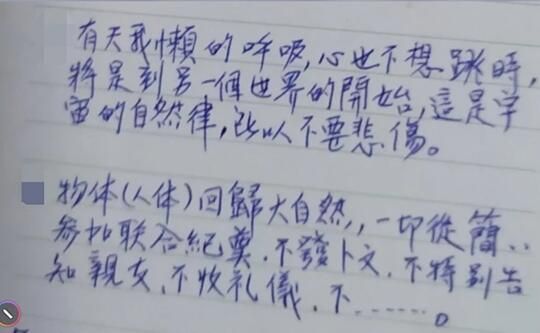 有天我懶的呼吸,心也不想跳時,
將是到另一個世界的開始,這是宇
宙的自然律,所以人不要悲傷。
物体(人体)回歸大自然,,一切從簡..
参加联合紀奠.不發卜文.不特別告
知親友.不收礼儀.不......。